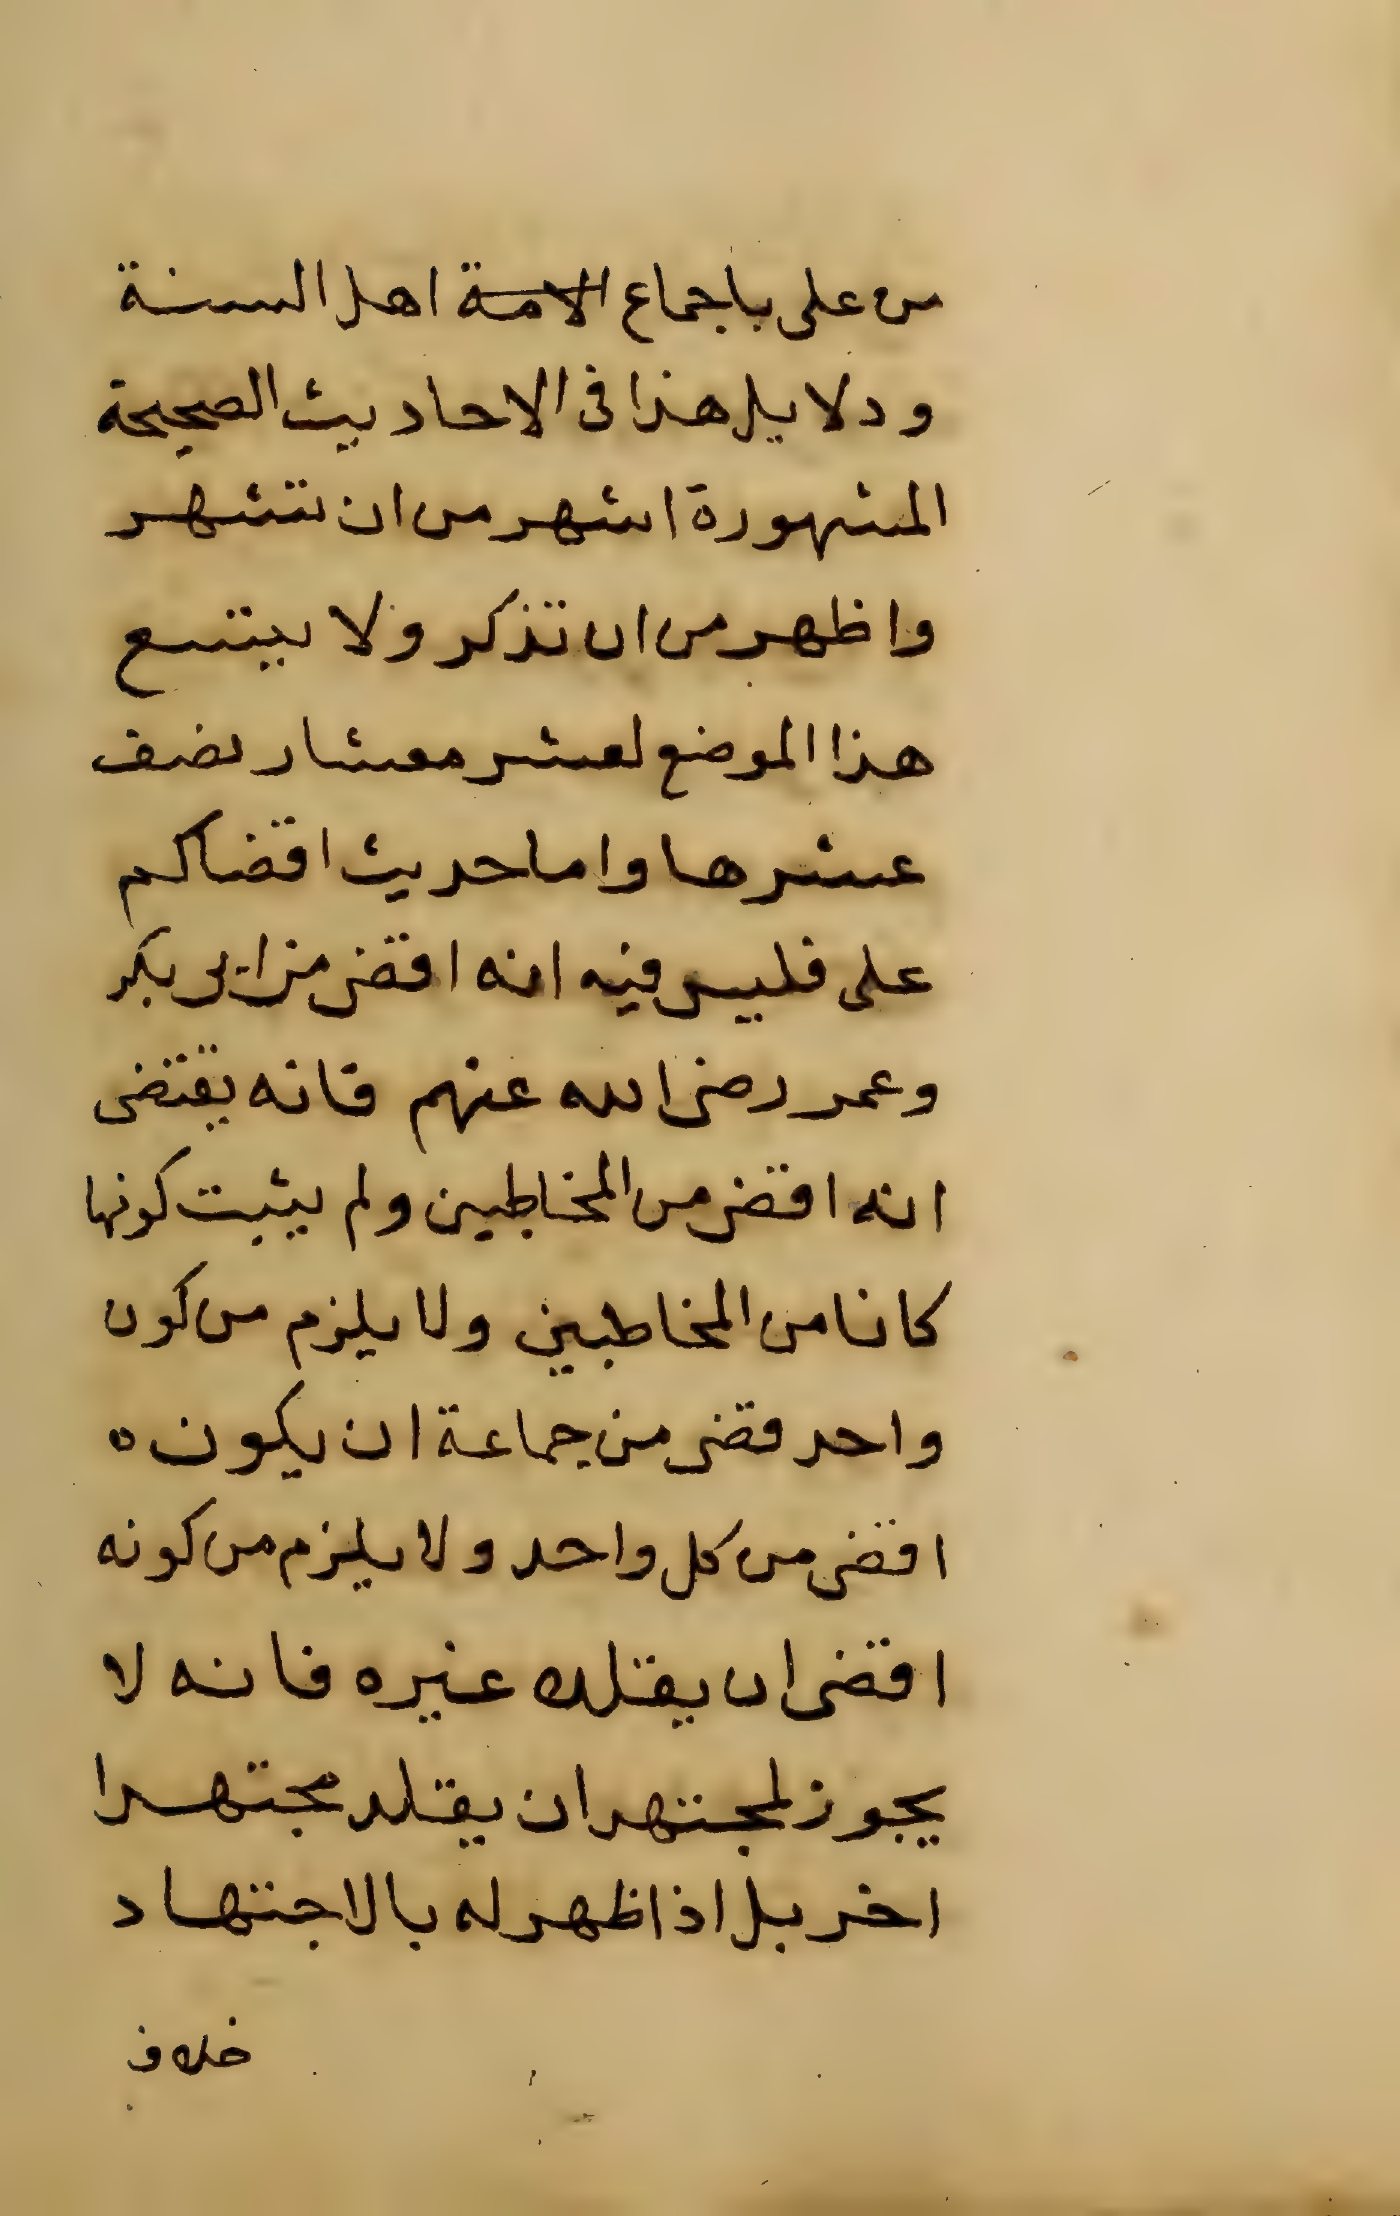 من على باجماع الامة اهل السنة
ودلايل هذا فى الاحاديث الصحيحة
المشهورة اشهر من ان تشهر
واظهر من ان تذكر ولا يتسع
هذا الموضع لعشر معشار نصف
عشرها واما حديث اقضاكم
على فليس فيه انه اقضى من ابى بكر
وعمر رضى الله عنهم فانه يقتضى
انه اقضى من المخاطبين ولم يثبت كونها
كانا من المخاطبين ولا يلزم من كون
واحد قضى من جماعة ان يكون ه
اقضى من كل واحد ولا يلزم من كونه
اقضى ان يقتلد غيره فانه لا
يجوز لمجتهد ان يقلد مجتهدا
اخر بل اذا ظهر له بالاجتهاد
خلاف